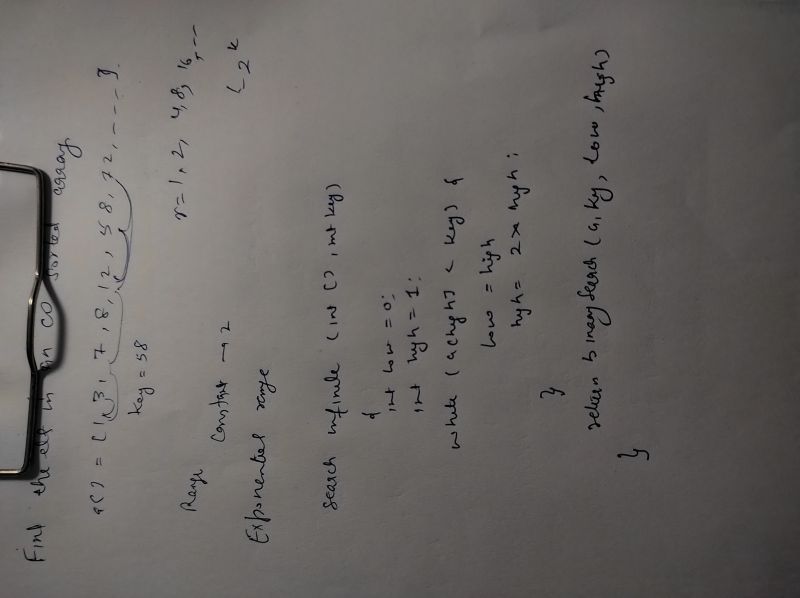 Find the ele in an ∞ sorted array
a[] = [1, 3, 7, 8, 12, 58, 72, --- ].
key = 58
r = 1, 2, 4, 8, 16, ---
Range constant → 2
↳ 2^k
Exponential range
search infinite (int [], int key)
{
int low = 0;
int high = 1;
while (a[high] < key) {
low = high
high = 2 x high;
}
return binary search (a, key, low, high)
}